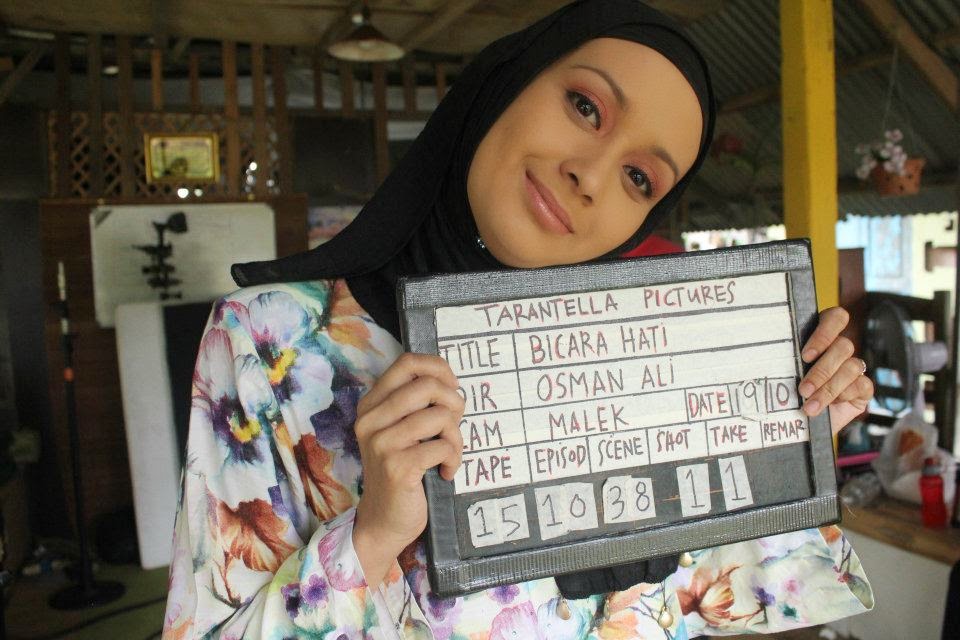 TARANTELLA PICTURES
TITLE BICARA HATI
DIR OSMAN ALI
CAM MALEK DATE 19/10
TAPE EPISOD SCENE SHOT TAKE REMAR
15 10 38 1 1